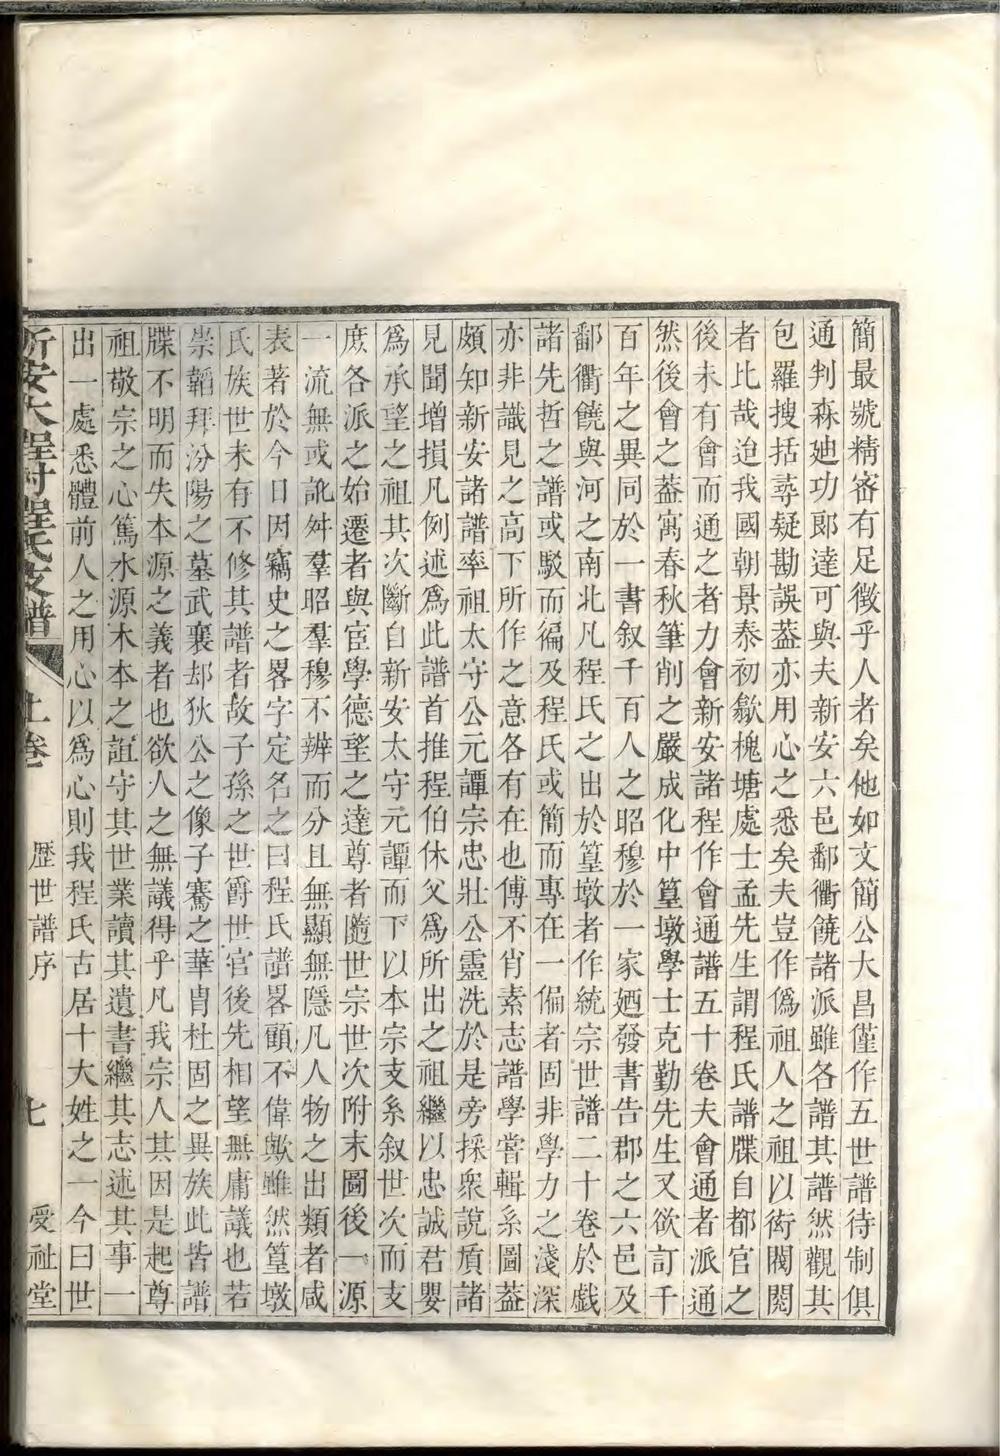 簡最號精審有足徵乎人者矣他如文簡公大昌僅作五世譜待制俱
通判森廸功郎達可與夫新安六邑鄱衢饒諸派雖各譜其譜然觀其
包羅搜括尋疑勘誤葢亦用心之悉矣夫豈作僞祖人之祖以衒閥閱
者比哉迨我國朝景泰初歙槐塘處士孟先生謂程氏譜牒自都官之
後未有會而通之者力會新安諸程作會通譜五十卷夫會通者派通
然後會之葢寓春秋筆削之嚴成化中篁墩學士克勤先生又欲訂千
百年之異同於一書叙千百人之昭穆於一家廼發書告郡之六邑及
鄱衢饒與河之南北凡程氏之出於篁墩者作統宗世譜二十卷於戲
諸先哲之譜或駁而徧及程氏或簡而專在一偏者固非學力之淺深
亦非識見之高下所作之意各有在也傅不肖素志譜學嘗輯系圖葢
頗知新安諸譜率祖太守公元譚宗忠壯公靈洗於是旁採衆說質諸
見聞增損凡例述爲此譜首推程伯休父爲所出之祖繼以忠誠君嬰
爲承望之祖其次斷自新安太守元譚而下以本宗支系叙世次而支
庶各派之始遷者與宦學德望之達尊者隨世宗世次附末圖後一源
一流無或訛舛羣昭羣穆不辨而分且無顯無隱凡人物之出類者咸
表著於今日因竊史之畧字定名之曰程氏譜畧顧不偉歟雖然篁墩
氏族世未有不修其譜者故子孫之世爵世官後先相望無庸議也若
崇韜拜汾陽之墓武襄却狄公之像子騫之華胄杜固之異族此皆譜
牒不明而失本源之義者也欲人之無議得乎凡我宗人其因是起尊
祖敬宗之心篤水源木本之誼守其世業讀其遺書繼其志述其事一
出一處悉體前人之用心以爲心則我程氏古居十大姓之一今曰世
新安大程村程氏支譜 上卷 歷世譜序 七 受祉堂